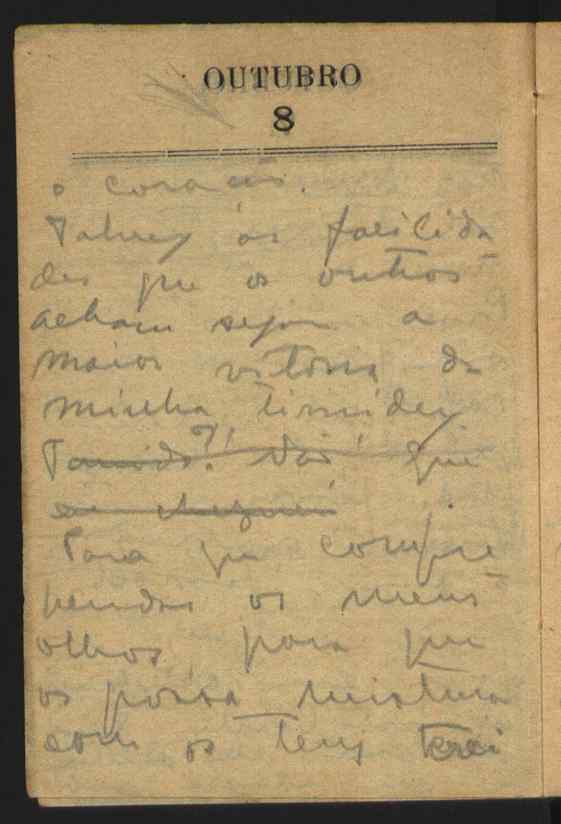 OUTUBRO
8
o coração.
Talvez as felicida-
des que os outros
acham sejam a
maior vitoria da
minha timidez
Timido?! Não! Que
Para que compre-
hendas os meus
olhos, para que
os possa misturar
com os teus terei